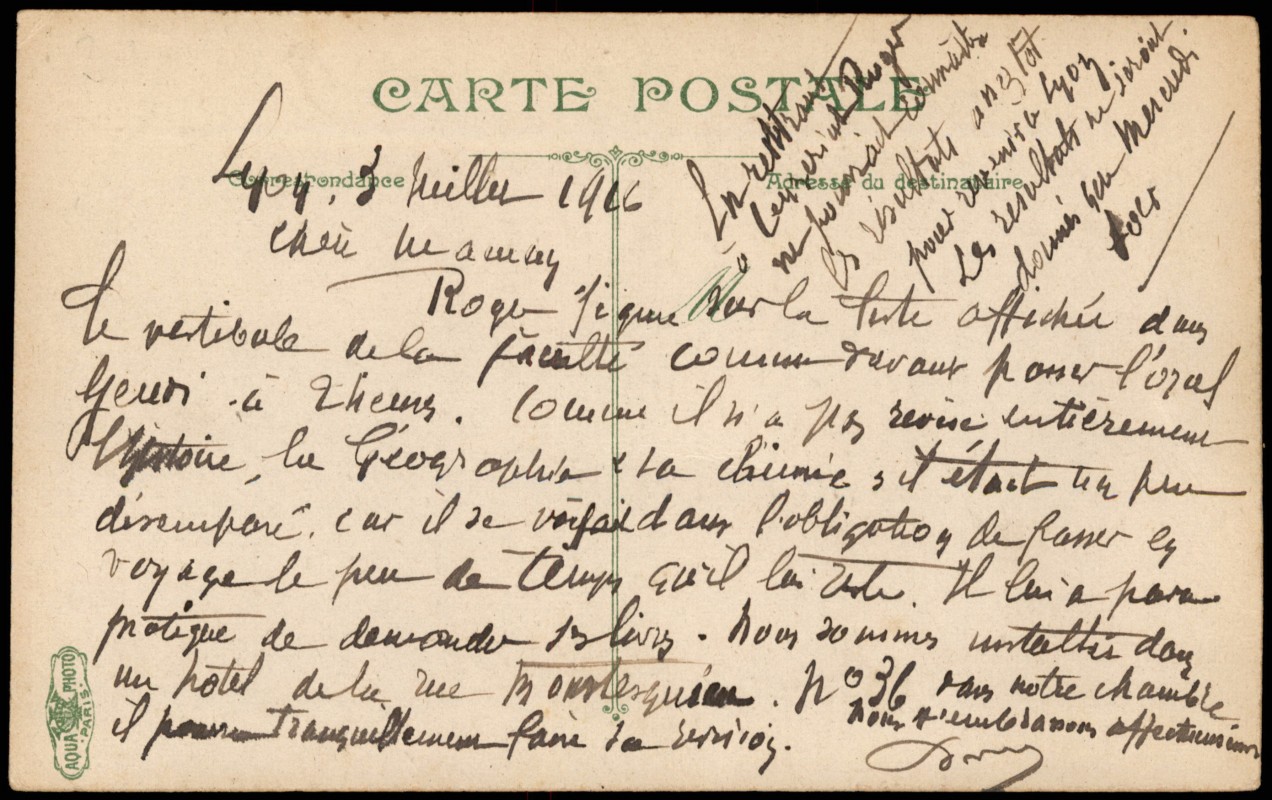 CARTE POSTALE
Correspondance
Adresse du destinataire
Lyon, 3 Juillet 1916
Chère Mamy
Roger figure sur la liste affichée dans
le vestibule de la faculté comme devant passer l'oral
Jeudi à 2 heures. Comme il n'a pas revisé entièrement
l'histoire, la Géographie & la chimie, il était un peu
désemparé, car il se voyait dans l'obligation de passer en
voyage le peu de temps qu'il lui reste. Il lui a paru
pratique de demander ses livres. Nous sommes installés dans
un hotel de la rue Montesquieu. No 36 dans notre chambre
il pourra tranquillement faire sa révision.
Nous t'embrassons affectueusement
En rentrant
à Roger
ne pourrait connaître
les résultats assez tôt
pour revenir à Lyon
Les résultats ne seront
donnés que Mercredi
soir
AQUA PHOTO
PARIS